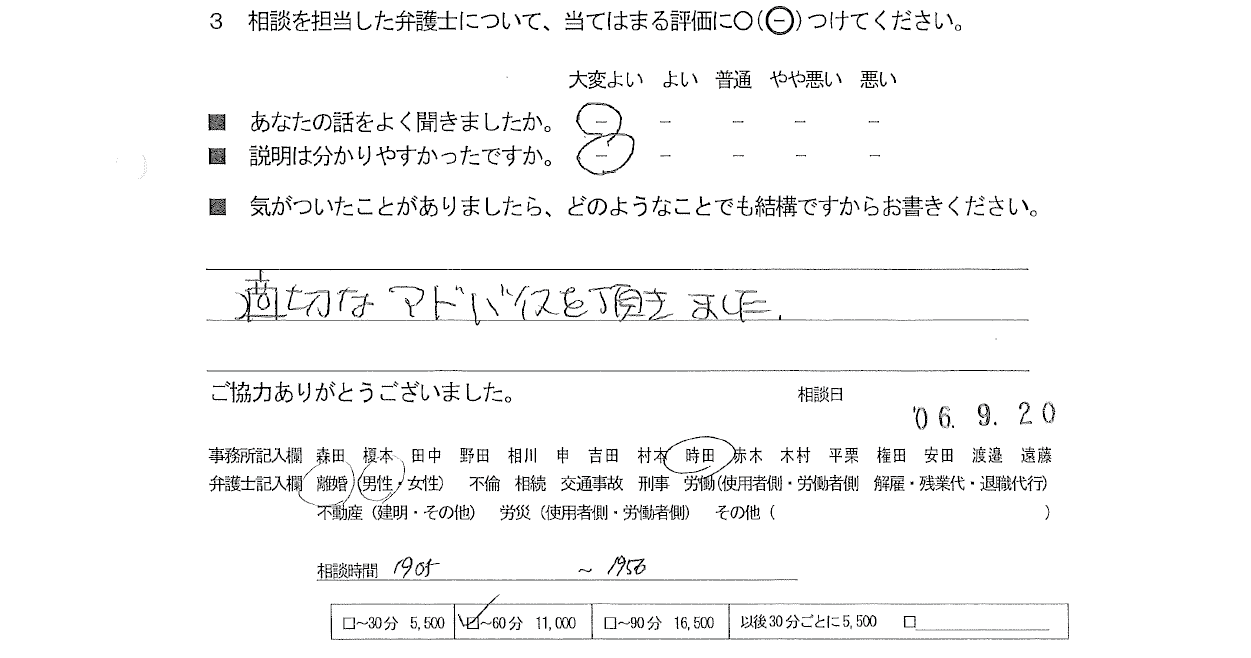 3 相談を担当した弁護士について、当てはまる評価に○(㊀)つけてください。
大変よい よい 普通 やや悪い 悪い
■ あなたの話をよく聞きましたか。 － － － － －
■ 説明は分かりやすかったですか。 － － － － －
■ 気がついたことがありましたら、どのようなことでも結構ですからお書きください。
適切な アドバイスを頂きました.
ご協力ありがとうございました。 相談日
'06. 9. 20
事務所記入欄 森田 榎本 田中 野田 相川 申 吉田 村本 時田 赤木 木村 平栗 権田 安田 渡邉 遠藤
弁護士記入欄 離婚(男性・女性) 不倫 相続 交通事故 刑事 労働(使用者側・労働者側 解雇・残業代・退職代行)
不動産(建明・その他) 労災(使用者側・労働者側) その他( )
相談時間 1905 ～ 1956
□～30分 5,500 □～60分 11,000 □～90分 16,500 以後30分ごとに5,500 □